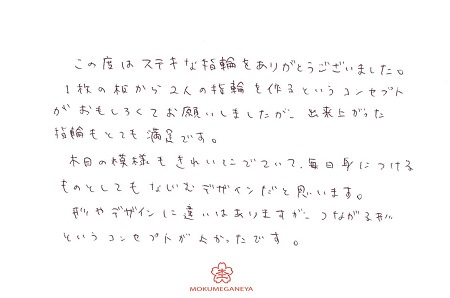 この度はステキな指輪をありがとうございました。
1枚の板から2人の指輪を作るというコンセプト
がおもしろくてお願いしましたが、出来上がった
指輪もとても満足です。
木目の模様もきれいにでていて、毎日身につける
ものとしてもなじむデザインだと思います。
形やデザインに違いはありますが、つながる形
というコンセプトがよかったです。
MOKUMEGANEYA